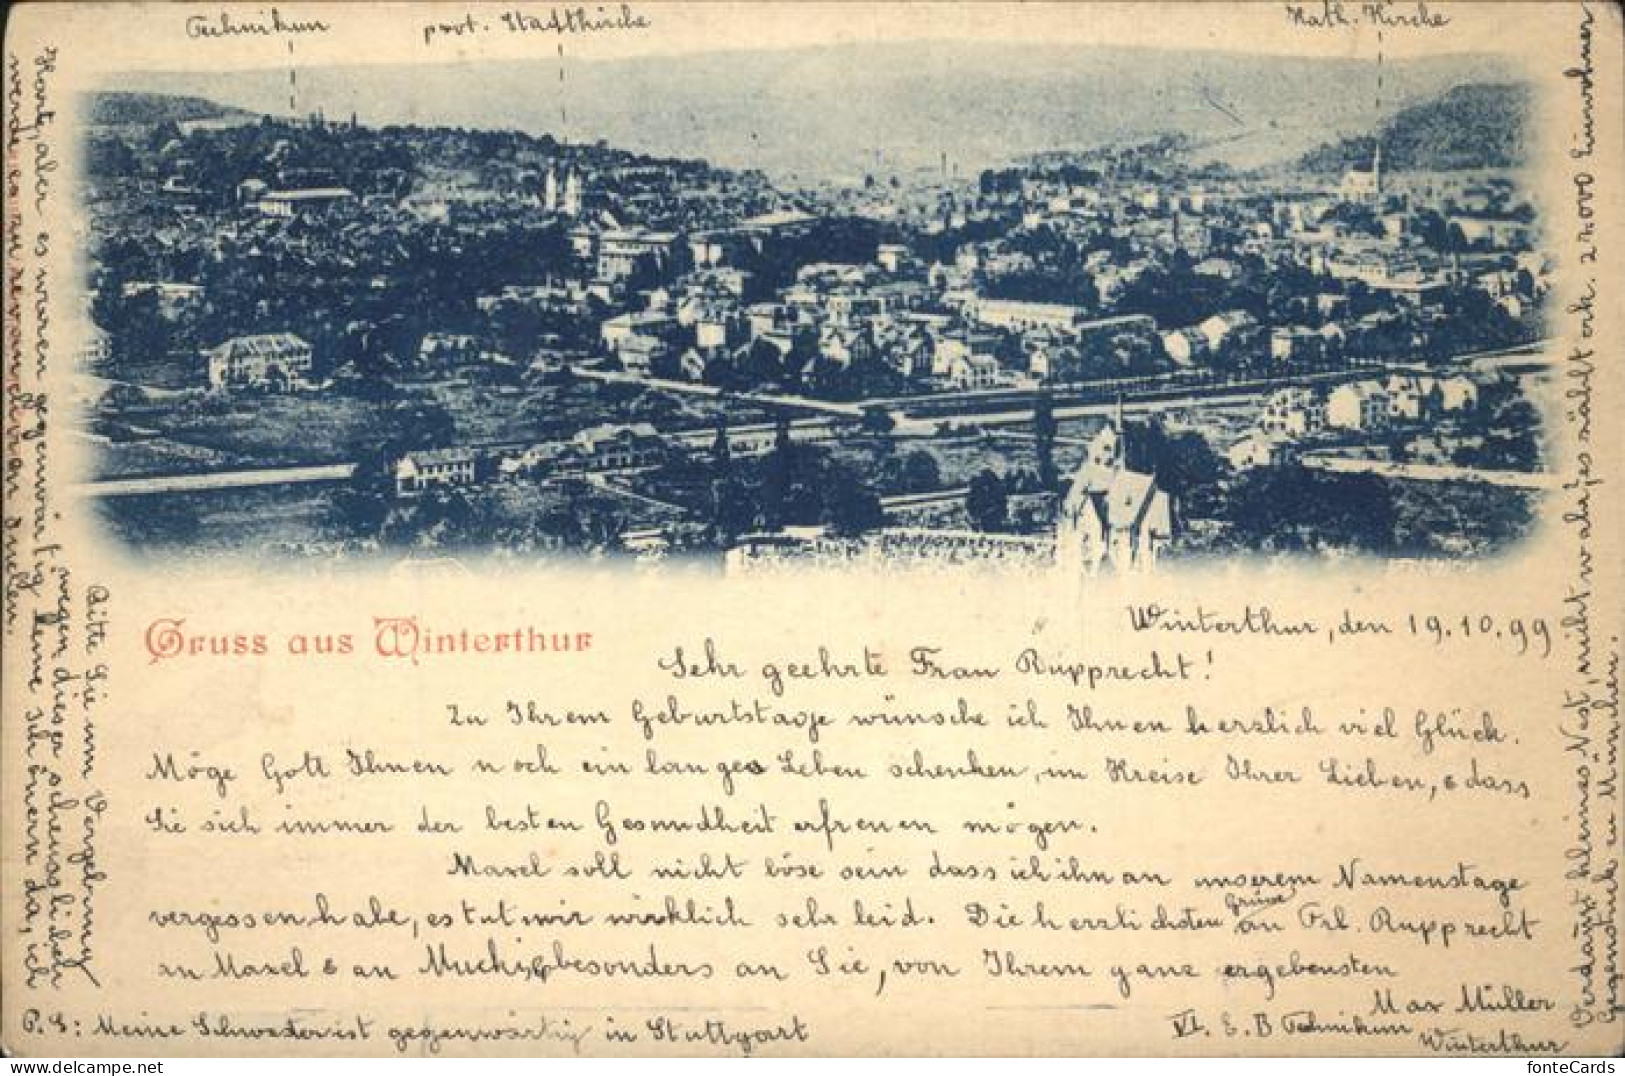 Technikum
prot. Stadtkirche
Kath. Kirche
Gruss aus Winterthur
Winterthur, den 19.10.99
Sehr geehrte Frau Rupprecht!
Zu Ihrem Geburtstage wünsche ich Ihnen herzlich viel Glück.
Möge Gott Ihnen noch ein langes Leben schenken, im Kreise Ihrer Lieben, & dass
Sie sich immer der besten Gesundheit erfreuen mögen.
Maxel soll nicht böse sein dass ich ihn an unserem Namenstage
vergessen habe, es tut mir wirklich sehr leid. Die herzlichsten Grüsse an Frl. Rupprecht
an Maxel & an Mucki, & besonders an Sie, von Ihrem ganz ergebensten
Max Müller
VI. S. B Technikum
Winterthur
P.S: Meine Schwester ist gegenwärtig in Stuttgart
Bitte Sie um Vergebung
wegen dieser scheusslichen
Karte, aber es waren gegenwärtig keine schönern da, ich
werde es an anderen suchen.
Verdammt kleines Nest, nicht wahr? es zählt ca. 27.000 Einwohner
Gegenstück zu München.
fonteCards